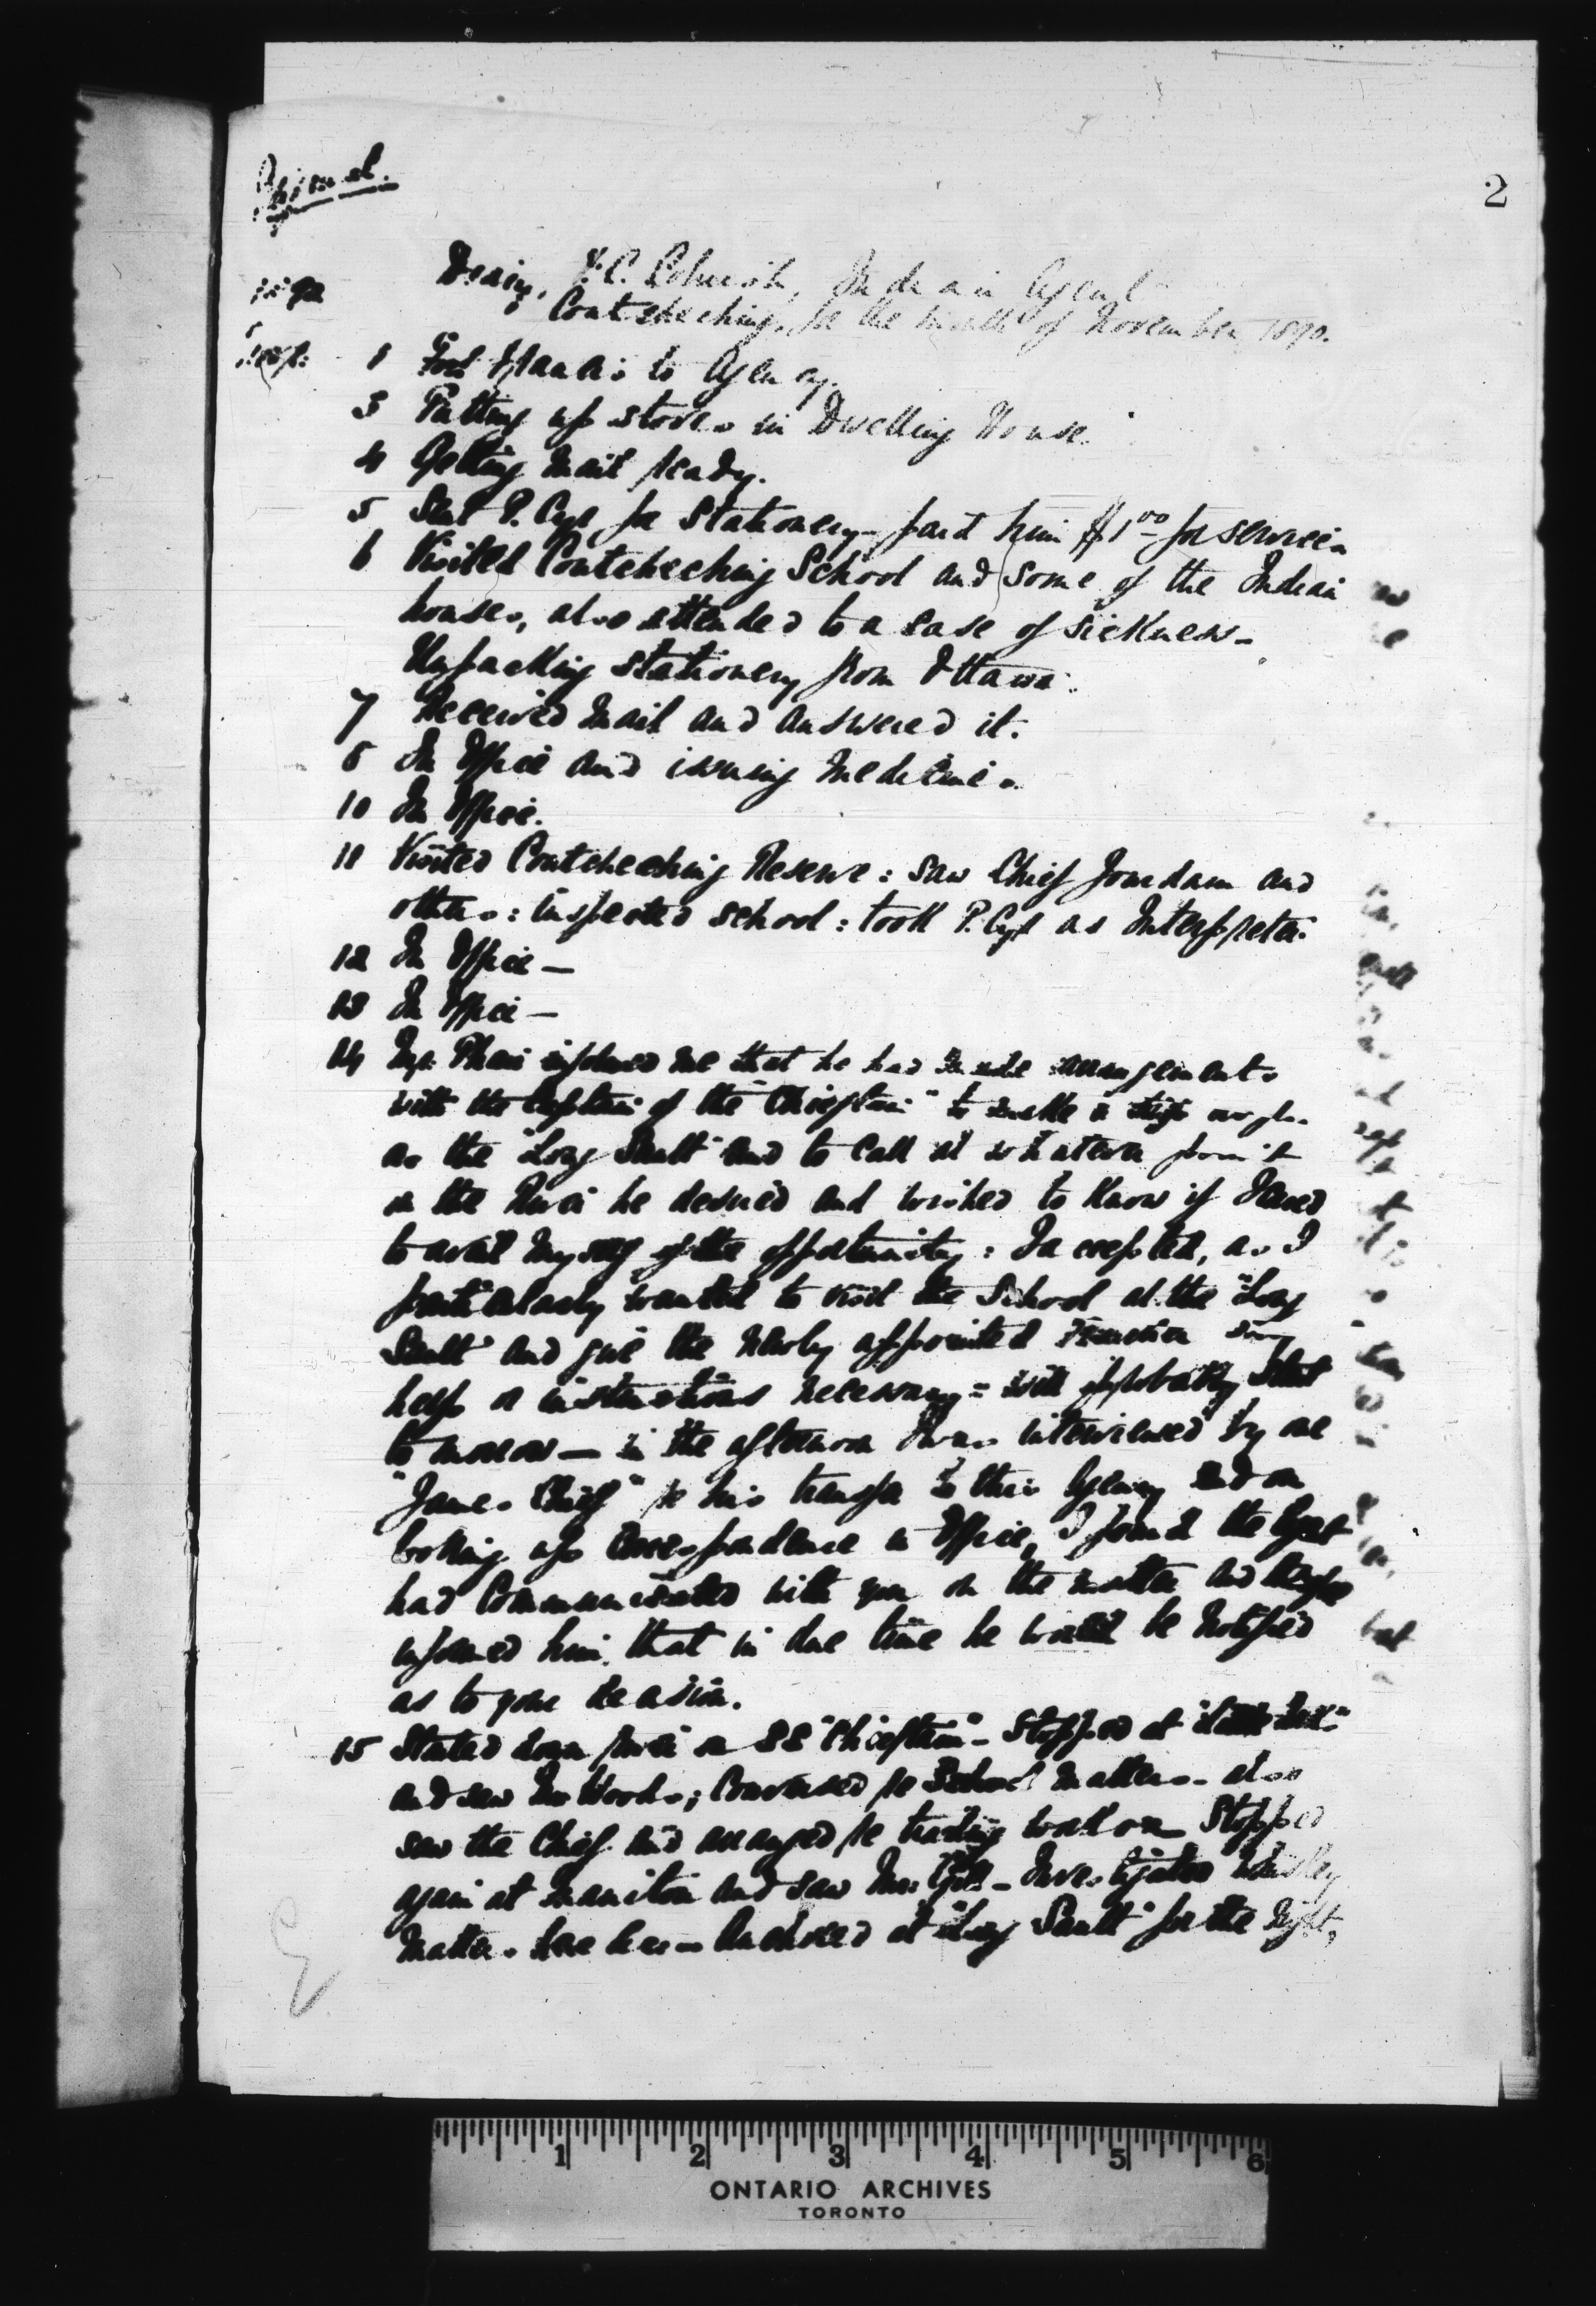 2
Diary, F. C. Cornish, Indian Agent
Coutcheching, for the month of November 1890.
1 Fort Francis to Agency.
3 Putting up stoves in Dwelling House
4 Getting mail ready.
5 Sent P. Cyr for Stationery - paid him $1.00 for services
6 Visited Coutcheeching School and some of the Indian
houses, also attended to a case of sickness -
Unpacking stationery from Ottawa.
7 Received mail and answered it.
8 In Office and issuing medicines
10 In Office.
11 Visited Coutcheeching Reserve: saw Chief Jourdain and
others: inspected school: took P. Cyr as Interpreter.
12 In Office —
13 In Office —
14 informed me that he had made arrangements
with the Captain of the "Chieftain" to make a trip as far
as the "Long Sault" and to call at whatever point
on the River he desired and wished to know if I cared
to avail myself of the opportunity: I accepted, as I
particularly wanted to visit the School at the "Long
Sault" and give the newly appointed Teacher any
help or instructions necessary = will probably start
to morrow — in the afternoon I was interviewed by one
"James Chief" re his transfer to this Agency and on
looking up Correspondence in Office, I found the Agent
had Communicated with you on the matter and
informed him that in due time he would be notified
as to your decision.
15 Started down river on SS "Chieftain" - Stopped at
and saw Mr Wood; Conversed re School matters - also
saw the Chief and arranged re Stopped
again at Manitou and saw - Investigated Whiskey
matters here Anchored at "Long Sault" for the night,
1
2
3
4
5
6
ONTARIO ARCHIVES
TORONTO